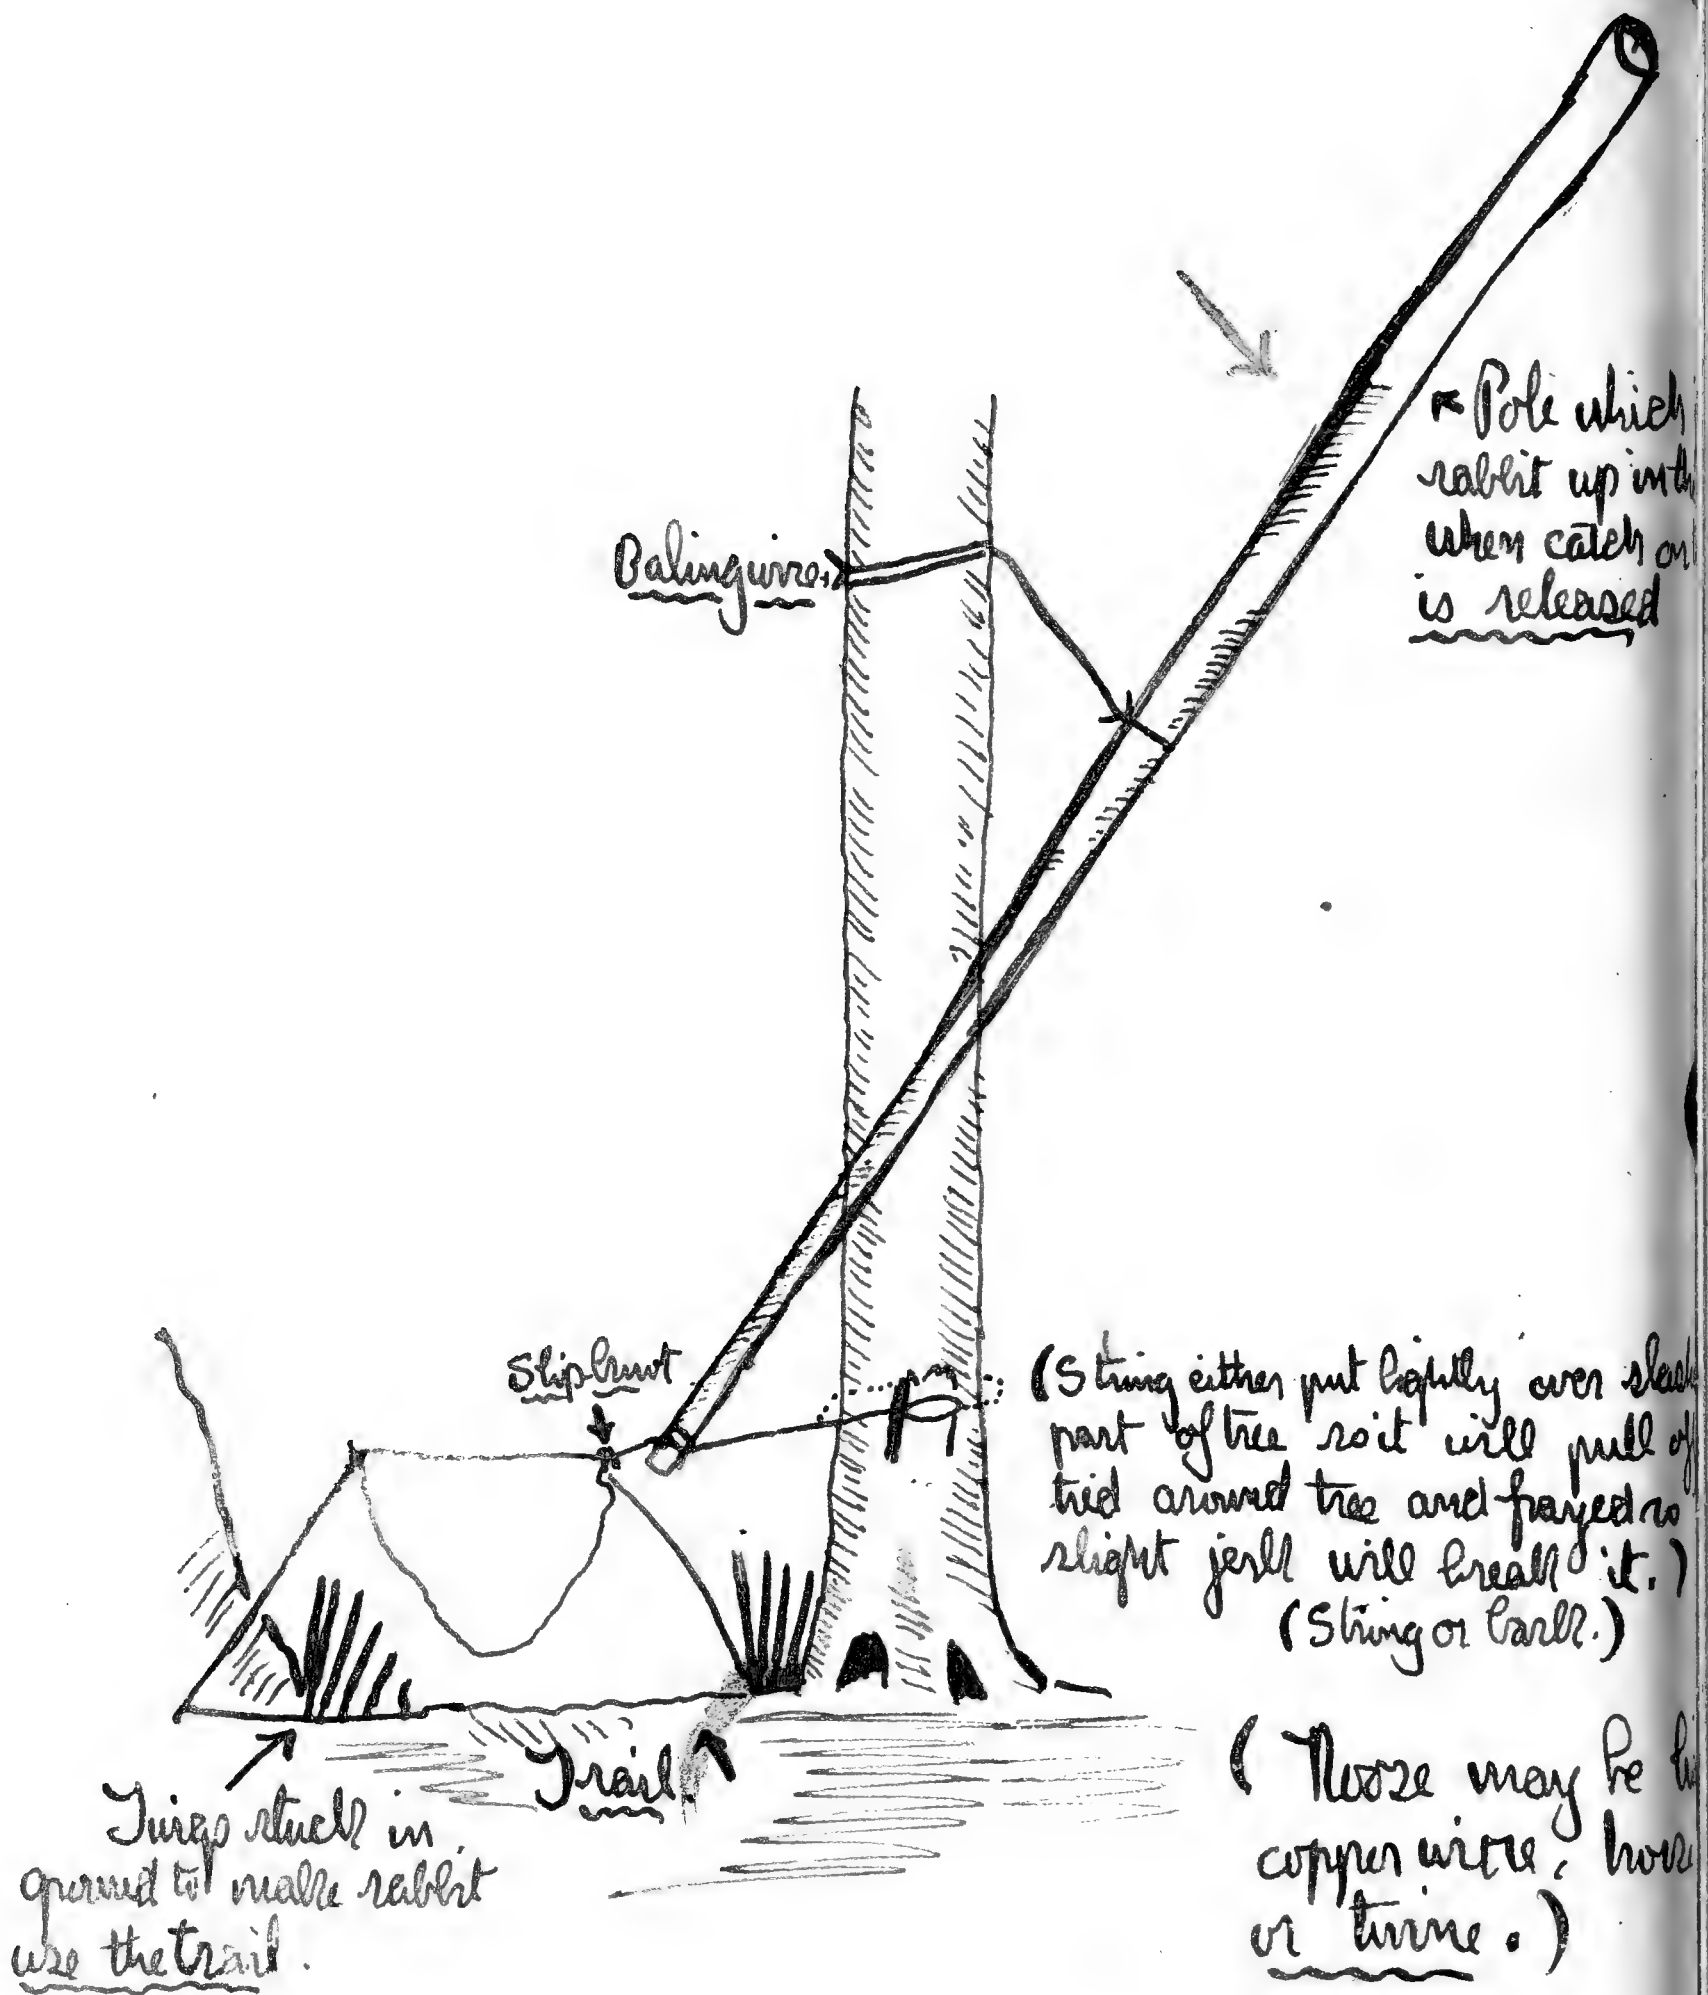 Pole which
rabbit up in th
when catch on
is released
Baling wire.
Slip knot
(String either put lightly over slash
part of tree so it will pull of
tied around tree and frayed so
slight jerk will break it.)
(String or bark.)
Trail
Twigs stuck in
ground to make rabbit
use the trail.
( Nooze may be
copper wire,
or twine.)